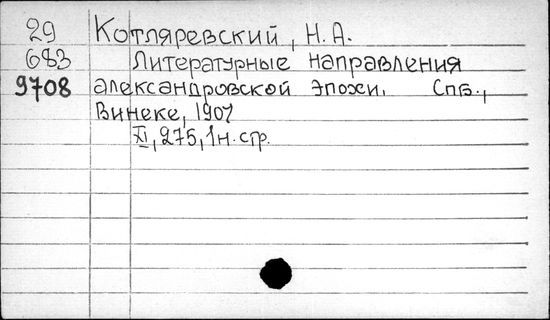 29 Котляревский, Н.А.
683 Литературные направления
9708 александровской эпохи. Спб.,
Винеке, 1907
XI, 275, 1 н. стр.